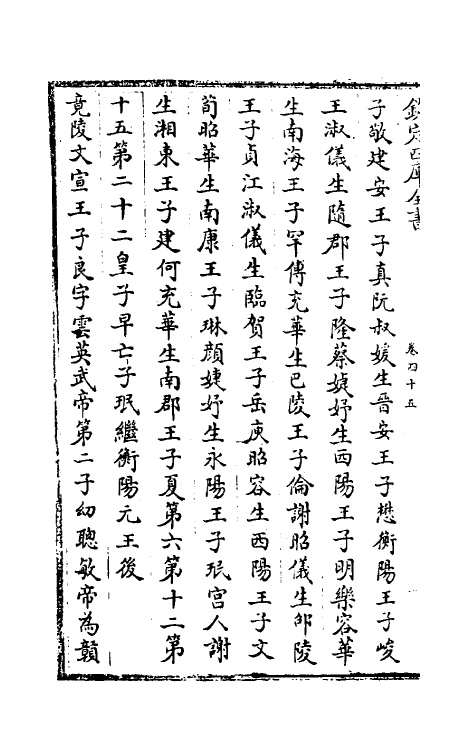 欽定四庫全書
卷四十五
子敬建安王子真阮叔媛生晉安王子懋衡陽王子峻
王淑儀生隨郡王子隆蔡婕妤生西陽王子明樂容華
生南海王子罕傅充華生巴陵王子倫謝昭儀生邵陵
王子貞江淑儀生臨賀王子岳庾昭容生西陽王子文
荀昭華生南康王子琳顔婕妤生永陽王子珉宫人謝
生湘東王子建何充華生南郡王子夏第六第十二第
十五第二十二皇子早亡子珉繼衡陽元王後
竟陵文宣王子良字雲英武帝第二子幼聰敏帝為贛